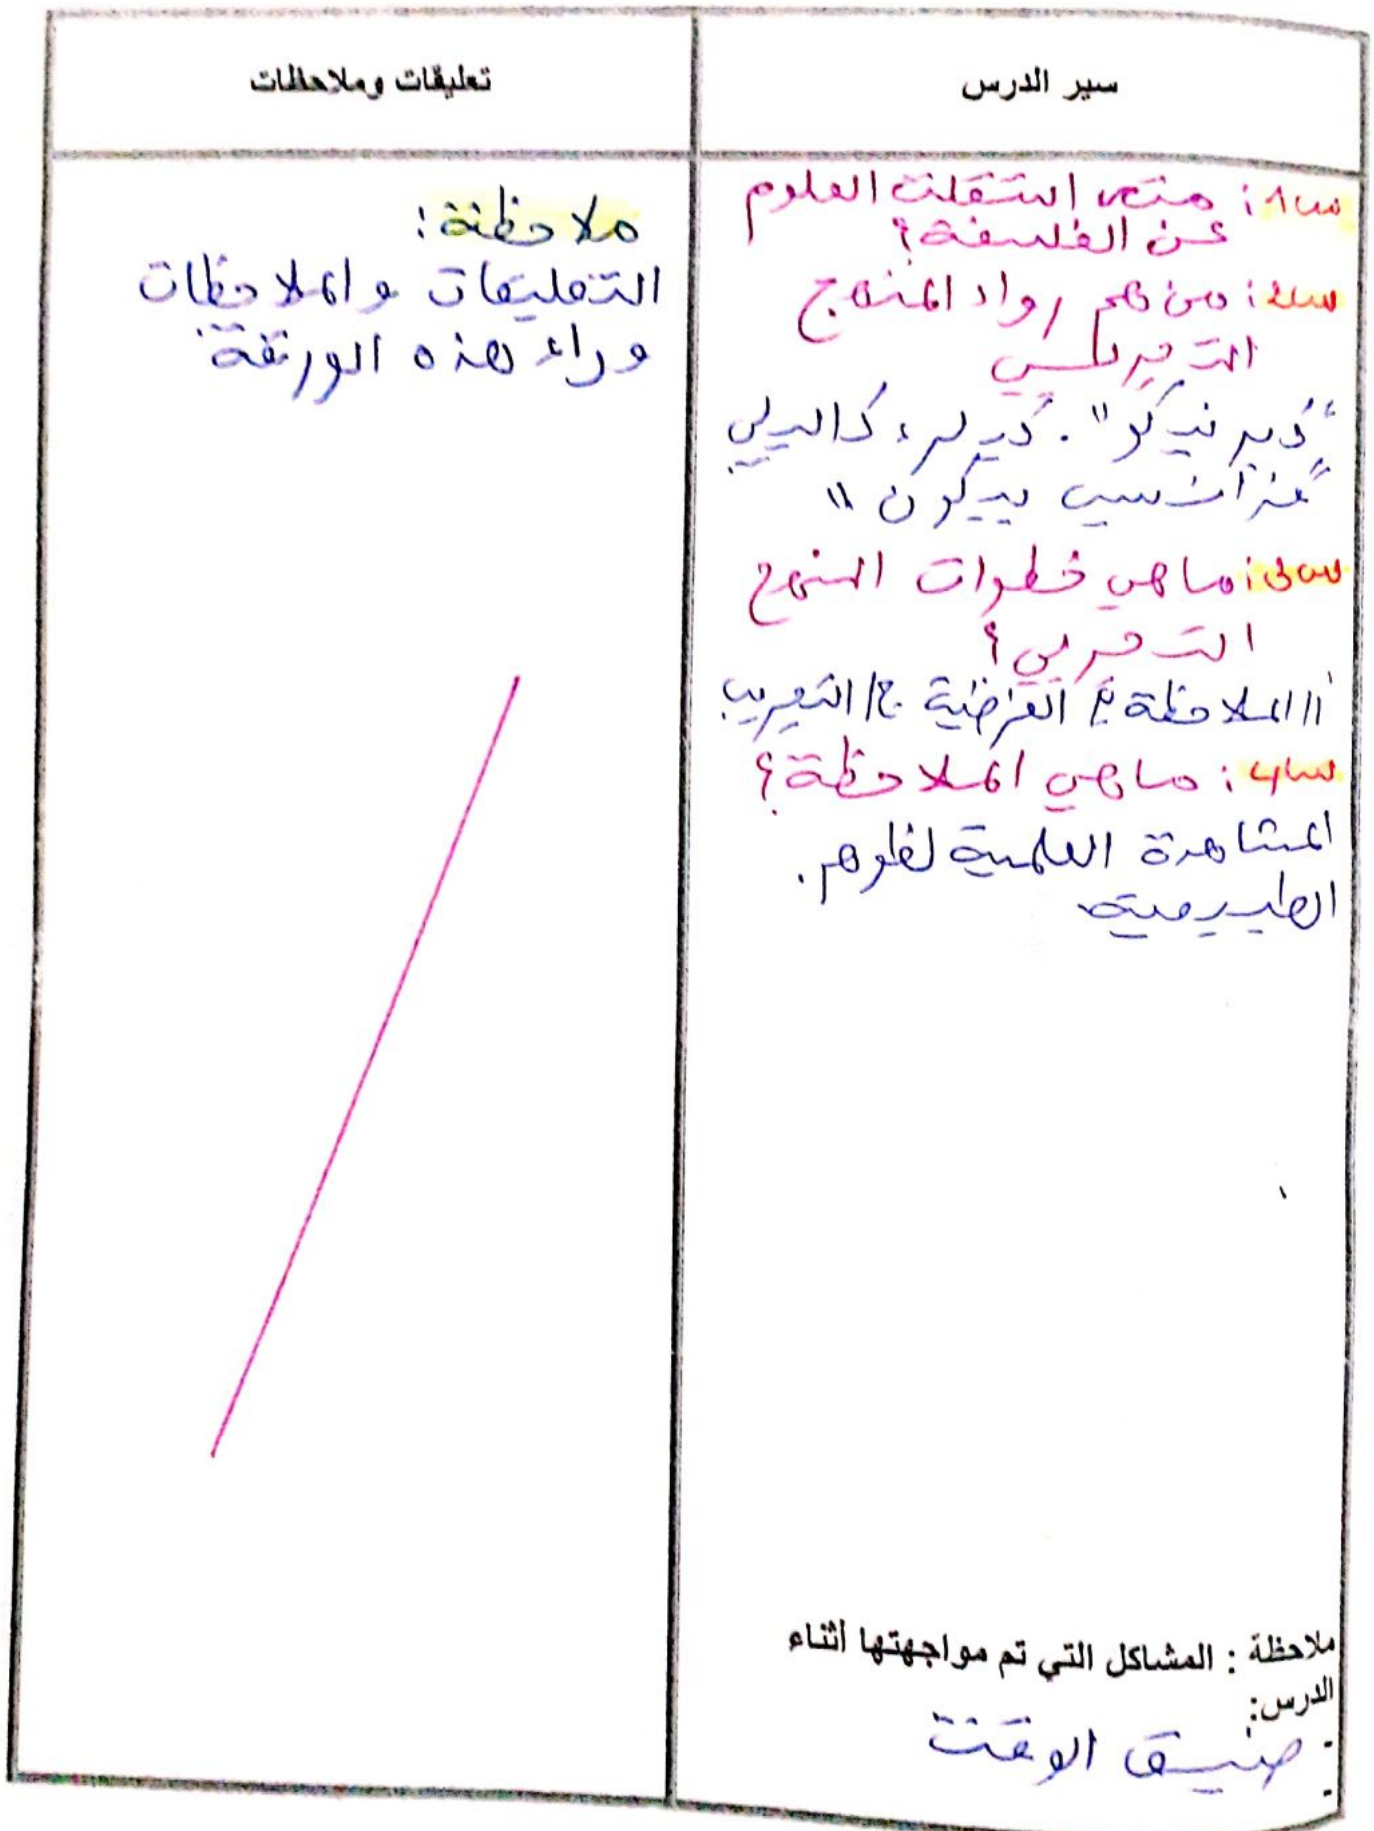 سير الدرس
س1: متى استقلت العلوم
عن الفلسفة؟
س2: من هم رواد المنهج
التجريبي
"كبرنيكو". كبلر، كاليلي
"فرانسيس بيكون"
س3: ماهي خطوات المنهج
التجريبي؟
أ/ الملاحظة ب/ الفرضية ج/ التجريب
س4: ماهي الملاحظة؟
المشاهدة العلمية لظوهر.
الطبيعية
ملاحظة : المشاكل التي تم مواجهتها أثناء
الدرس:
- ضيق الوقت
-
تعليقات وملاحظات
ملاحظة:
التعليقات والملاحظات
وراء هذه الورقة